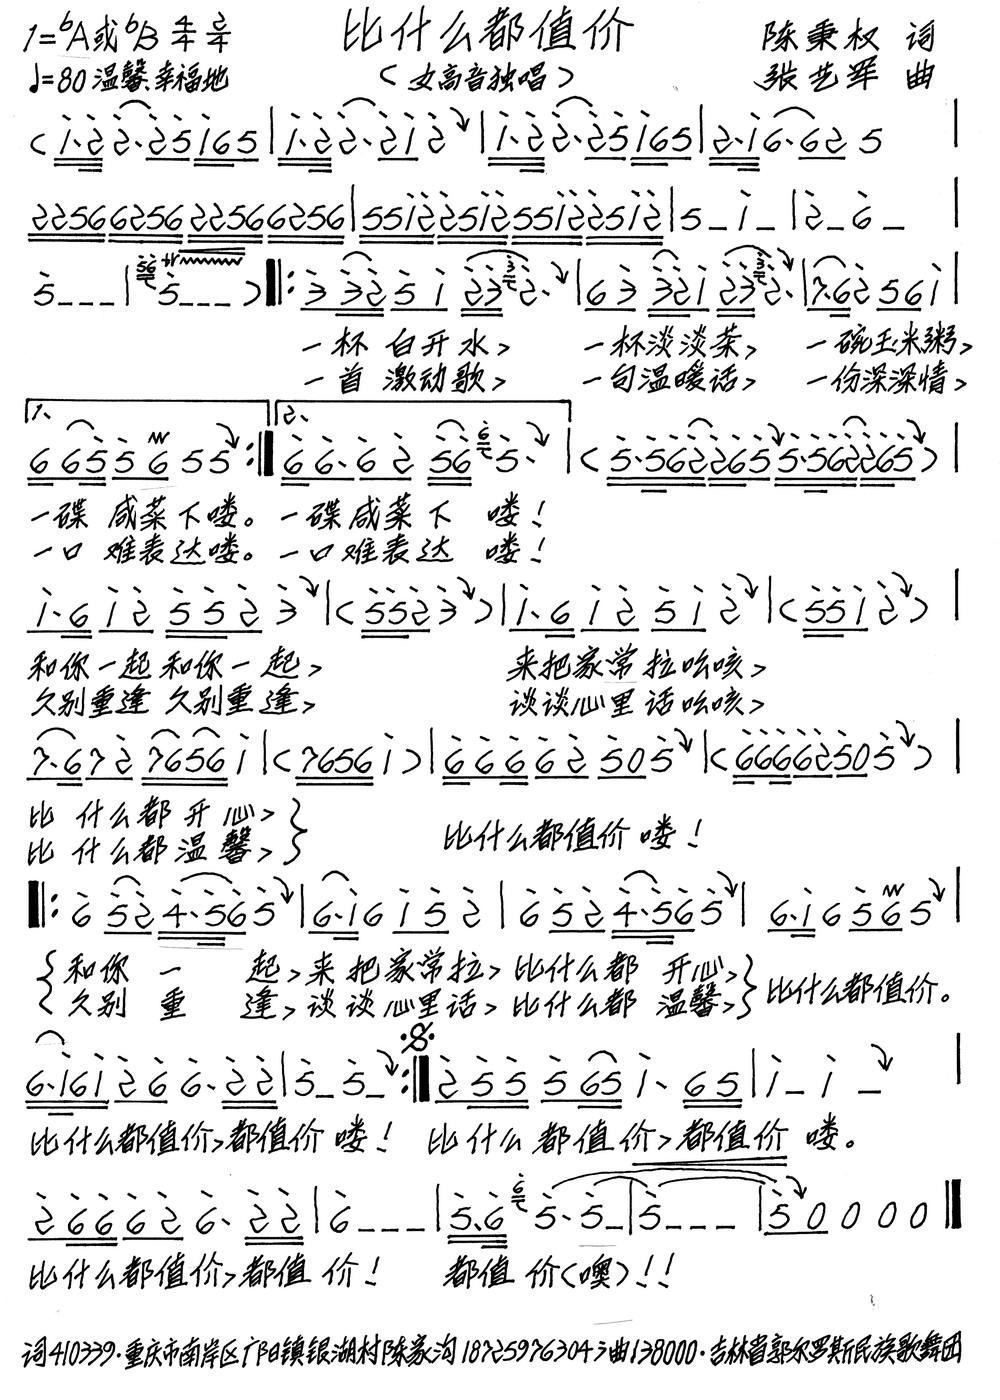 比什么都值价
1=♭A或♭B 4/4 2/4
陈秉权 词
♩=80 温馨、幸福地
（女高音独唱）
张艺军 曲
一杯 白开水, 一杯淡淡茶, 一碗玉米粥,
一首 激动歌, 一句温暖话, 一份深深情,
1、 2、
一碟 咸菜下喽。 一碟咸菜下 喽！
一口 难表达喽。 一口难表达 喽！
和你一起 和你一起, 来把家常拉吆咳,
久别重逢 久别重逢, 谈谈心里话吆咳,
比 什么都开心,
比什么都值价喽！
比 什么都温馨,
和你 一 起,来把家常拉,比什么都 开心,
比什么都值价。
久别 重 逢,谈谈心里话,比什么都 温馨,
比什么都值价,都值价喽！ 比什么都值价,都值价喽。
比什么都值价,都值价！ 都值价(噢)!!
词410339·重庆市南岸区广阳镇银湖村陈家沟18725976304;曲138000·吉林省郭尔罗斯民族歌舞团